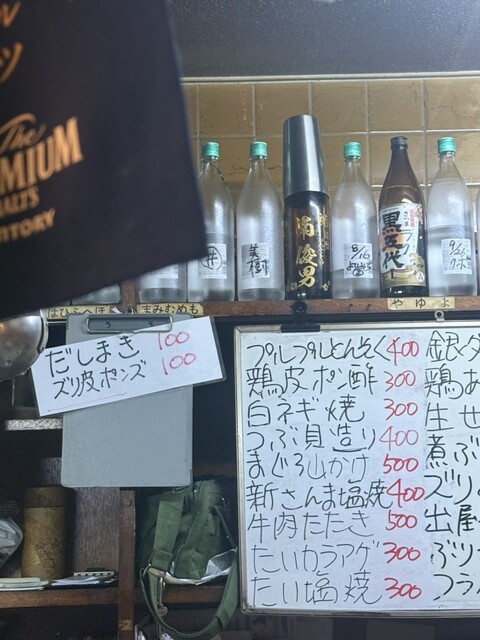 The
MIUM
MALTS
UNTORY
井
英樹
俊男
8/16
黒五代
はひふへほ
まみむめも
やゆよ
だしまき 100
ズリ皮ポンズ 100
プルプルとんそく 400 銀ダ
鶏皮ポン酢 300 鶏あ
白ネギ焼 300 生せ
つぶ貝造り 400 煮ぶ
まぐろ山かけ 500 ズリ
新さんま塩焼 400 出屋
牛肉たたき 500 ぶり
たいカラアゲ 300 フラ
たい塩焼 300